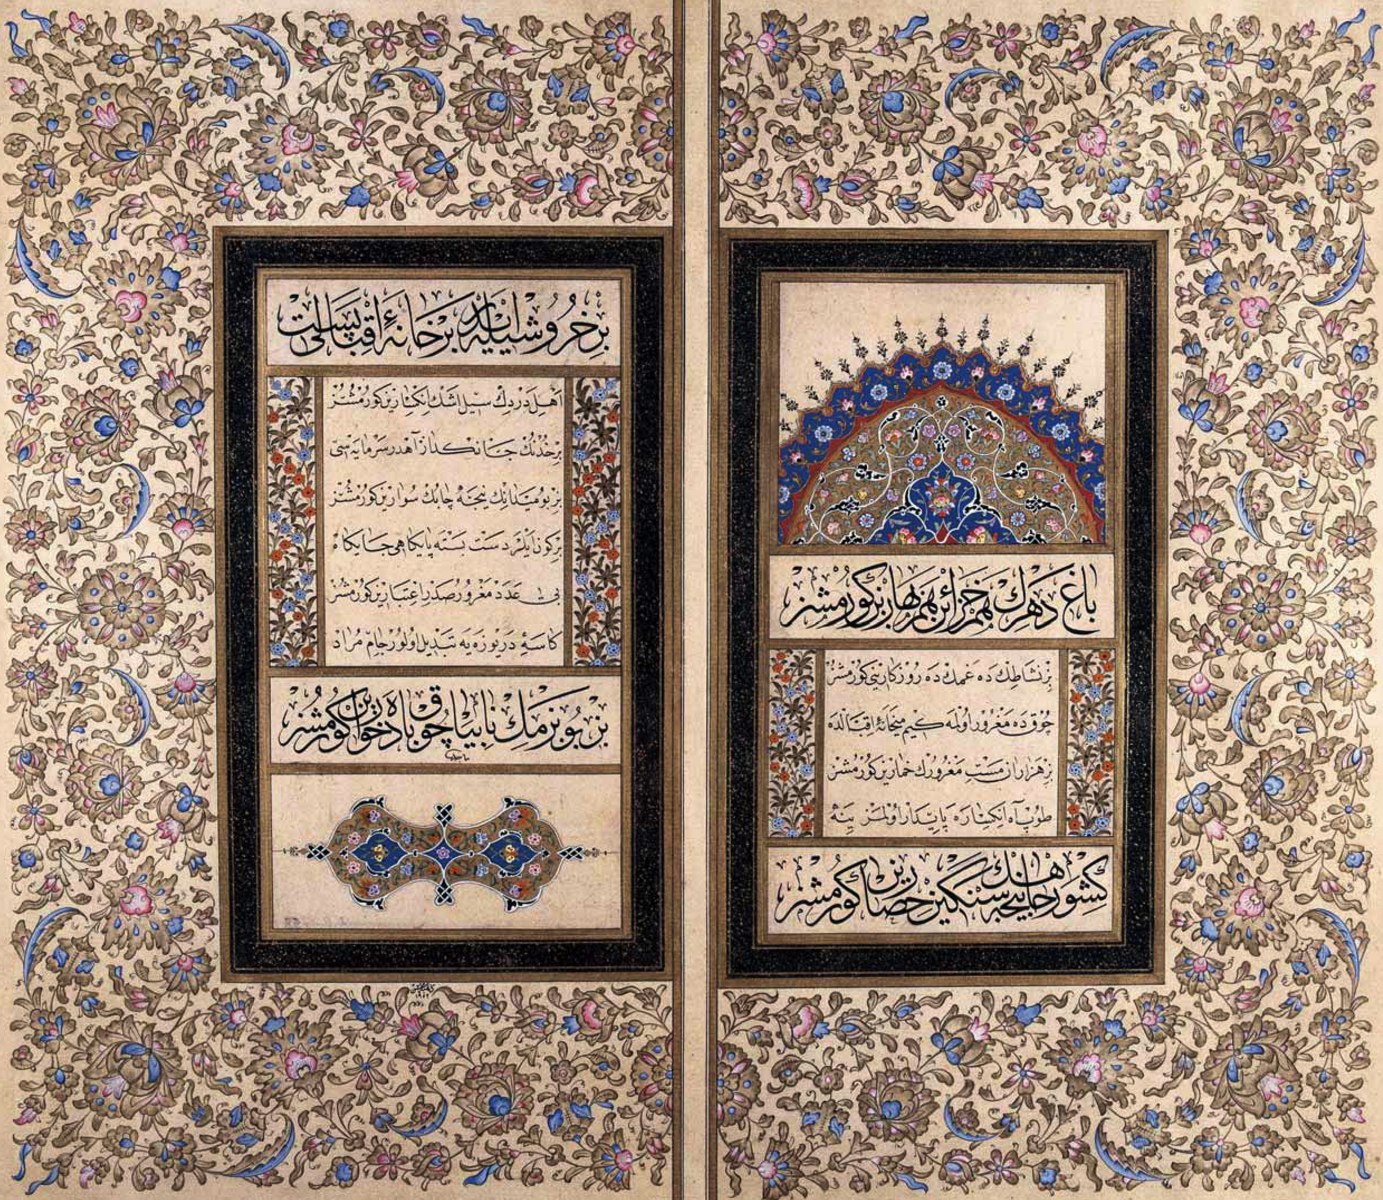 باغ دهرك هم خزانن هم بهارن كورمشز
بز نشاطك ده غمك ده روزكارینی كورمشز
چوق ده مغرور اولمه كیم میخانهٔ اقبالده
بز هزاران مست مغرورك خمارین كورمشز
طوپ آه انكساره پایدار اولمز ینه
كشور جاهك نیجه سنكین حصارین كورمشز
بر خروشیله ایدر بر خانهٔ اقبالی پست
اهل دردك سیل اشك انكسارین كورمشز
بر خدنك جانكداز آهدر سرمایه سی
بز بو میدانك نیجه چابك سوارین كورمشز
بر كون ایلر دست بسته پایكاهی جایكاه
بی عدد مغرور صدر اعتبارین كورمشز
كاسهٔ دریوزه یه تبدیل اولور جام مراد
بز بو بزمك نابیا چوق باده خوارین كورمشز